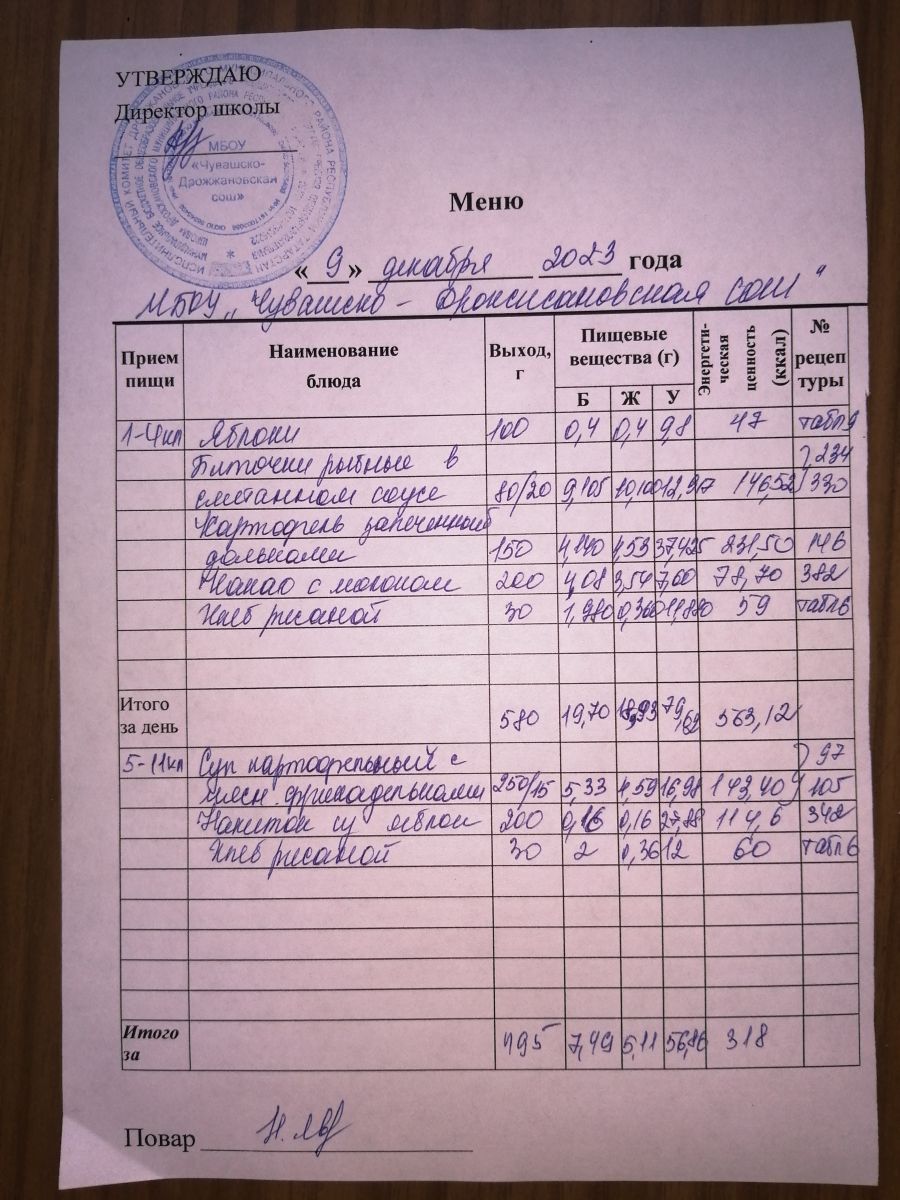 УТВЕРЖДАЮ
Директор школы
МБОУ
«Чувашско-
Дрожжановская
сош»
Меню
« 9 » декабря 2023 года
МБОУ „Чувашско - Дрожжановская сош"
Прием пищи Наименование блюда Выход, г Пищевые вещества (г) Б Ж У Энергети-ческая ценность (ккал) № рецеп туры
1-4кл Яблоки 100 0,4 0,4 9,8 47 табл9
Биточки рыбные в 234
сметанном соусе 80/20 9,105 10,100 12,917 146,52 330
Картофель запеченный
дольками 150 4,140 4,53 37,425 231,50 146
Какао с молоком 200 4,08 3,54 7,60 78,70 382
Хлеб ржаной 30 1,980 0,360 11,880 59 табл6
Итого
за день 580 19,70 18,93 79,62 563,12
5-11кл Суп картофельный с 97
мясн. фрикадельками 250/15 5,33 4,59 16,98 143,40 105
Напиток из яблок 200 0,16 0,16 27,88 114,6 342
Хлеб ржаной 30 2 0,36 12 60 табл6
Итого
за 495 7,49 5,11 56,86 318
Повар